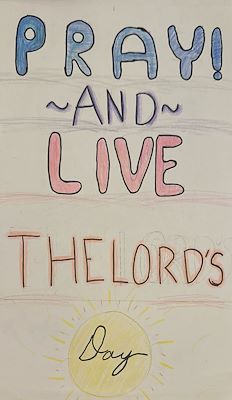 PRAY!
~AND~
LIVE
THE LORD'S
Day